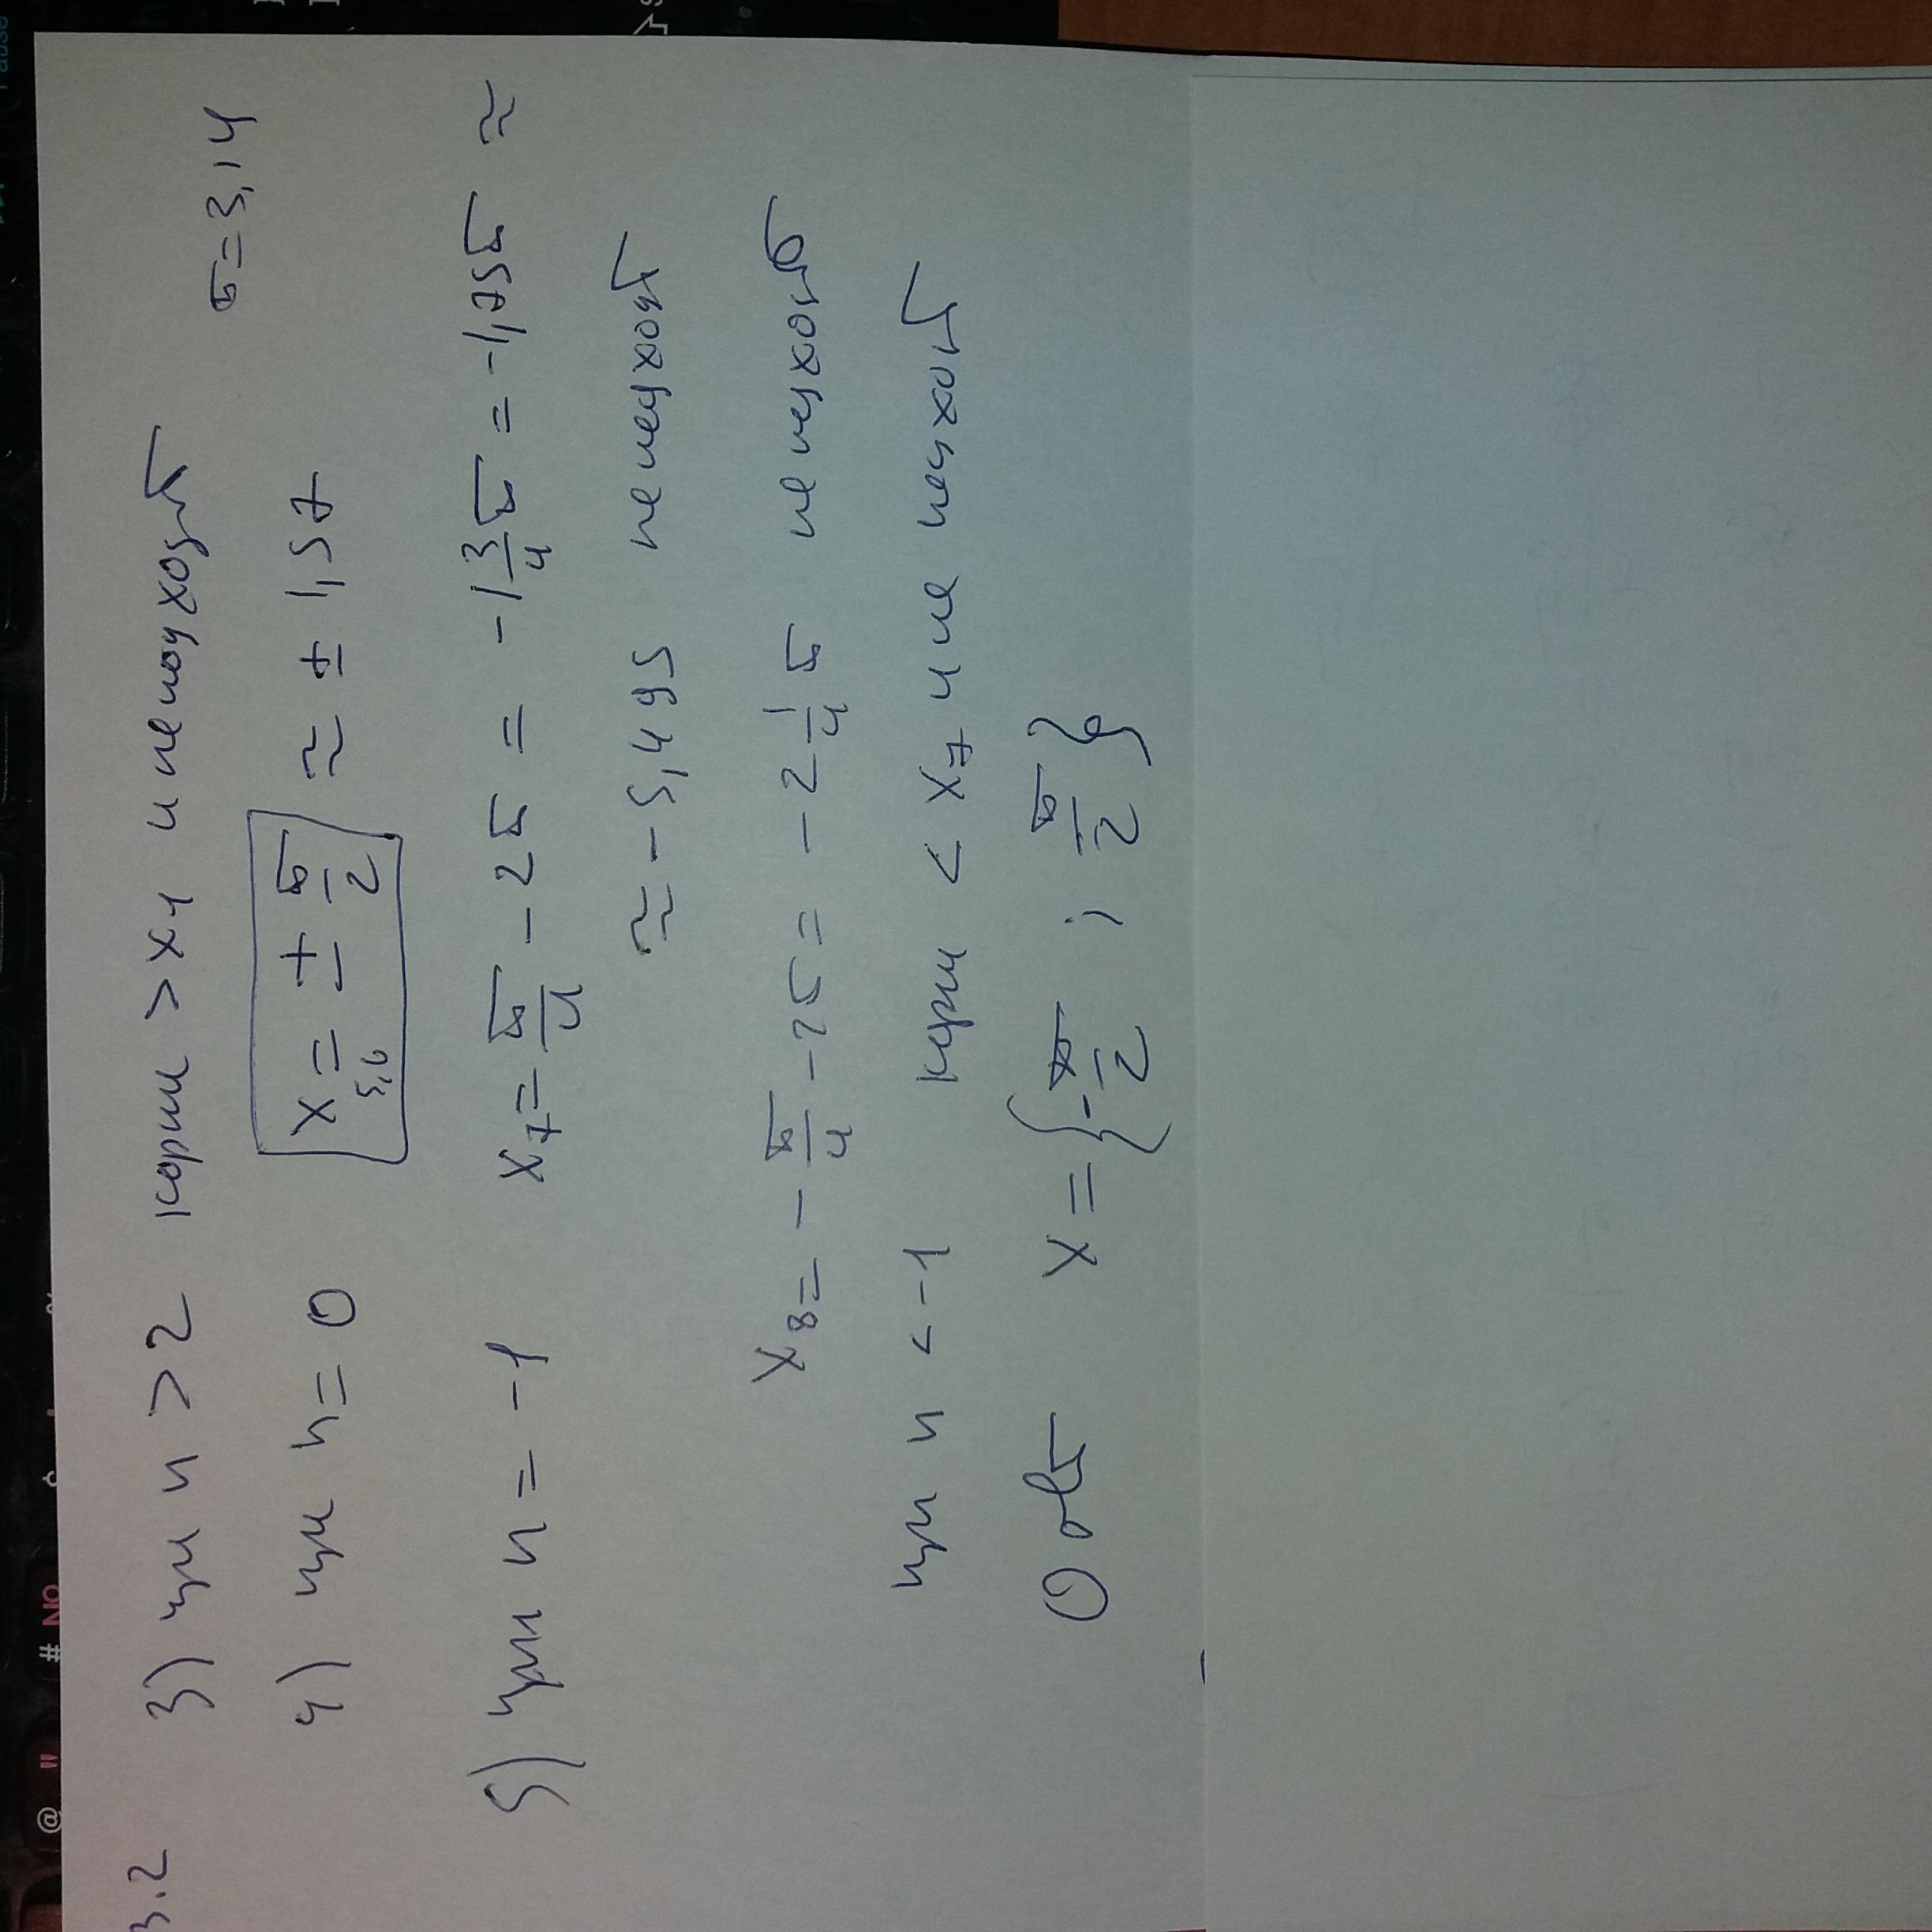 3.2 3) при n > 2 корни > x₄ и не подходят π = 3,14
4) при n = 0 x₅,₆ = ± π/2 ≈ ± 1,57
5) при n = -1 x₇ = π/4 - 2π = -1 3/4 π = -1,75π ≈
≈ -5,495 не подходят
x₈ = - π/4 - 2π = -2 1/4 π не подходят
при n < -1 корни < x₇ и не подходят
Ответ x = { -π/2 ; π/2 }